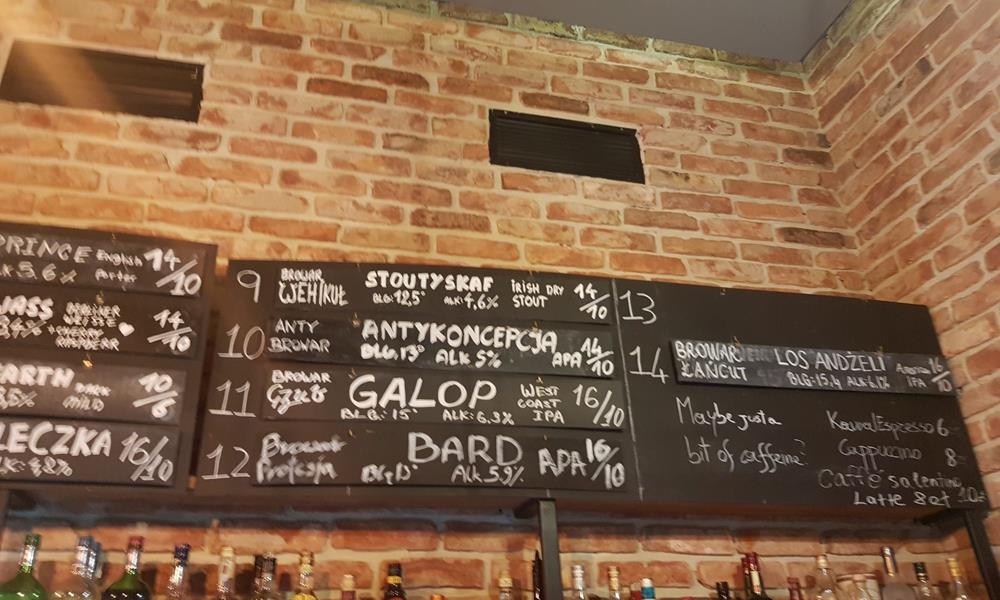 PRINCE English Porter 14/10
5,6%
14/10
+CHERRY
EARTH DARK MILD 10/6
3,5%
LECZKA 16/10
4,8%
9 BROWAR WEHIKUŁ STOUTYSKAF IRISH DRY STOUT 14/10
BLG: 12,5° ALK: 4,6%
10 ANTY BROWAR ANTYKONCEPCJA APA 14/10
BLG. 13° ALK 5%
11 BROWAR GALOP WEST COAST IPA 16/10
BLG.: 15° ALK: 6,3%
12 Browar BARD APA 16/10
ALK 5,9%
13
14 BROWAR ŁAŃCUT LOS ANDŻELI IPA 16/10
BLG: 15,4
Maybe justa
bit of caffeine?
Kawa/Espresso 6
Cappucino 8
Caffé salentino
Latte 8